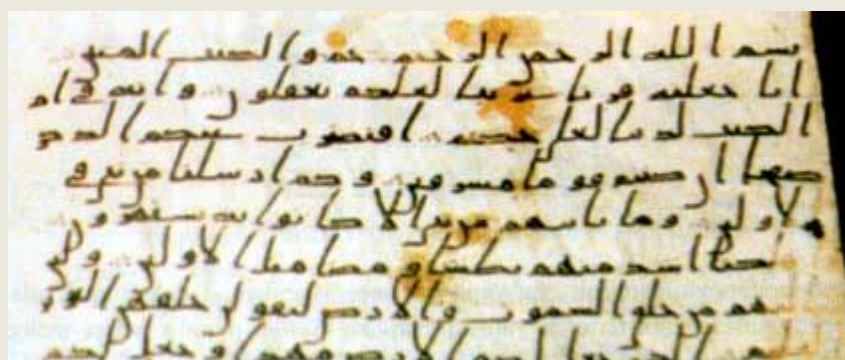 بسم الله الرحمن الرحيم حم والكتب المبين
انا جعلنه قرنا عربيا لعلكم تعقلون وانه في ام
الكتب لدينا لعلي حكيم افنضرب عنكم الذكر
صفحا ان كنتم قوما مسرفين وكم ارسلنا من نبي في
الاولين وما ياتيهم من نبي الا كانوا به يستهزون
اشد منهم بطشا ومضا مثل الاولين ولين
من خلق السموت والارض ليقولن خلقهن العزيز
الذي جعل لكم الارض مهدا وجعل لكم